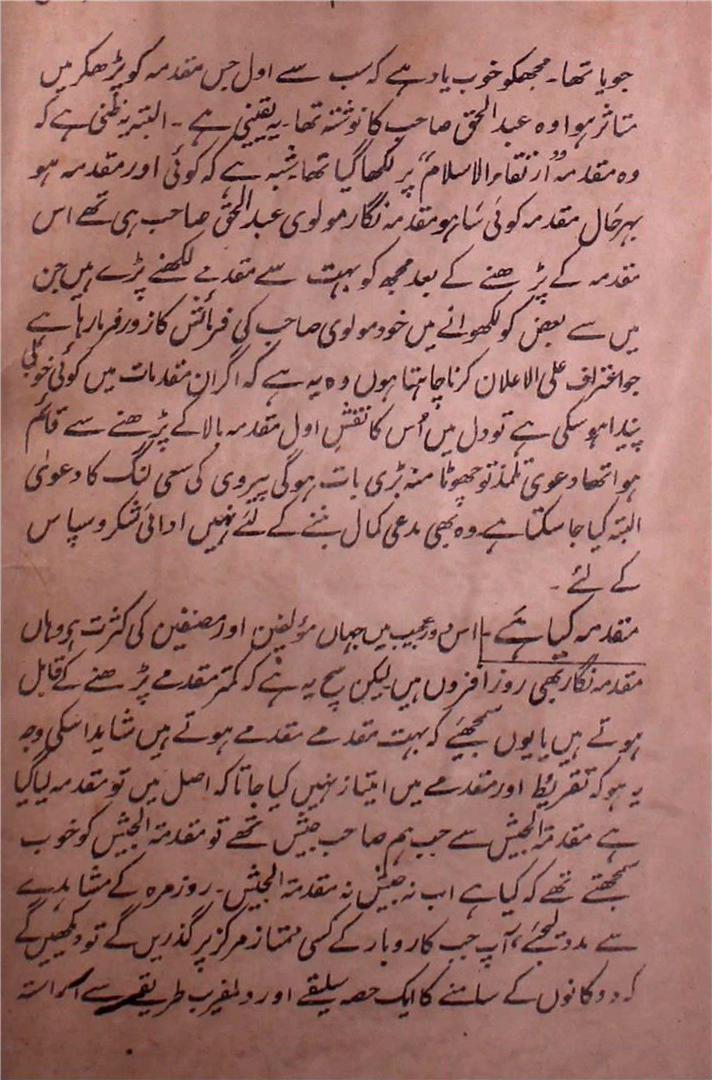 جویا تھا۔ مجھکو خوب یاد ہے کہ سب سے اول جس مقدمہ کو پڑھکر میں
متاثر ہوا وہ عبدالحق صاحب کا نوشتہ تھا۔ یہ یقینی ہے۔ البتہ یہ ظنی ہے کہ
وہ مقدمہ "ارتقاء الاسلام" پر لکھا گیا تھا۔ شبہ ہے کہ کوئی اور مقدمہ ہو
بہرحال مقدمہ کوئی سا ہو مقدمہ نگار مولوی عبدالحق صاحب ہی تھے اس
مقدمہ کے پڑھنے کے بعد مجھ کو بہت سے مقدمے لکھنے پڑے ہیں جن
میں سے بعض کو لکھوانے میں خود مولوی صاحب کی فرمائش کا زور فرما رہا ہے
جو اعتراف علی الاعلان کرنا چاہتا ہوں وہ یہ ہے کہ اگر ان مقدمات میں کوئی خوبی
پیدا ہو سکی ہے تو دل میں اُس کا نقش اول مقدمہ بالا کے پڑھنے سے قائم
ہوا تھا دعوی تلمذ تو چھوٹا منہ بڑی بات ہوگی پیروی کی سعی لنگ کا دعویٰ
البتہ کیا جا سکتا ہے وہ بھی مدعی کمال بننے کے لئے نہیں ادائی شکر و سپاس
کے لئے۔
مقدمہ کیا ہے۔ اس دور عجیب میں جہاں مؤلفین اور مصنفین کی کثرت ہے وہاں
مقدمہ نگار بھی روز افزوں ہیں لیکن سچ یہ ہے کہ کمتر مقدمے پڑھنے کے قابل
ہوتے ہیں یا یوں سمجھئے کہ بہت مقدمے مقدمے ہوتے ہیں شاید اسکی وجہ
یہ ہو کہ تقریظ اور مقدمے میں امتیاز نہیں کیا جاتا کہ اصل میں تو مقدمہ لیا گیا
ہے مقدمۃ الجیش سے جب ہم صاحب جیش تھے تو مقدمۃ الجیش کو خوب
سمجھتے تھے کہ کیا ہے اب نہ جیش نہ مقدمۃ الجیش۔ روزمرہ کے مشاہدے
سے مدد لیجئے، آپ جب کاروبار کے کسی ممتاز مرکز پر گذریں گے تو دیکھیں گے
کہ دوکانوں کے سامنے کا ایک حصہ سلیقے اور دلفریب طریقے سے آراستہ